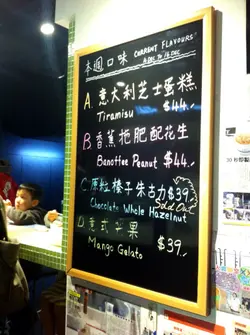 本週口味 CURRENT FLAVOURS
A 意大利芝士蛋糕
Tiramisu $44.
B 香蕉拖肥配花生
Banoffee Peanut $44.
C 原粒榛子朱古力 $39.
Sold Out
Chocolate Whole Hazelnut
D 意式芒果
Mango Gelato $39.